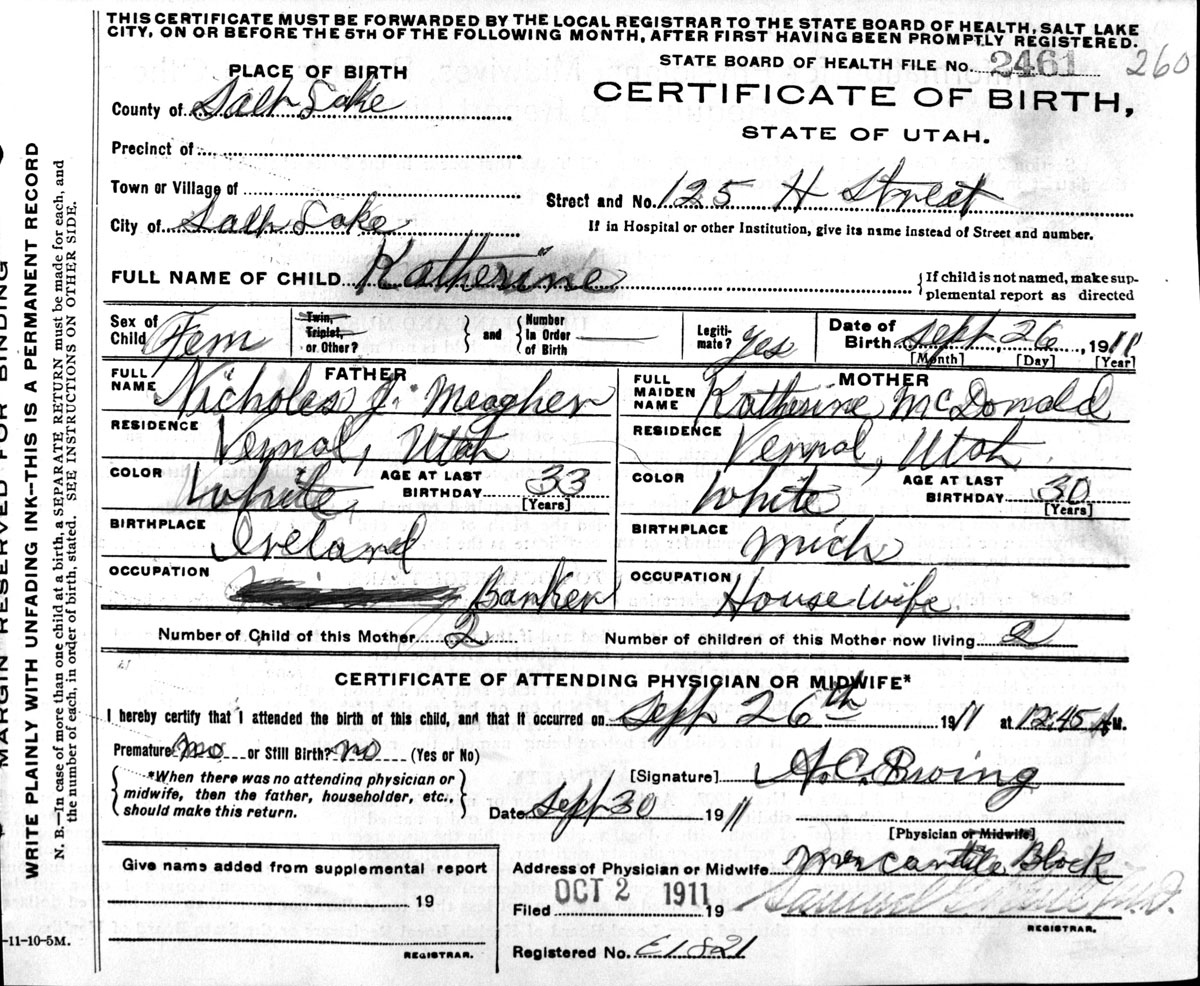 THIS CERTIFICATE MUST BE FORWARDED BY THE LOCAL REGISTRAR TO THE STATE BOARD OF HEALTH, SALT LAKE
CITY, ON OR BEFORE THE 5TH OF THE FOLLOWING MONTH, AFTER FIRST HAVING BEEN PROMPTLY REGISTERED.
STATE BOARD OF HEALTH FILE No. 2461 260
PLACE OF BIRTH
CERTIFICATE OF BIRTH,
STATE OF UTAH.
County of Salt Lake
Precinct of
Town or Village of
Street and No. 125 H Street
City of Salt Lake
If in Hospital or other Institution, give its name instead of Street and number.
FULL NAME OF CHILD Katherine
If child is not named, make sup-
plemental report as directed
Sex of Child Fem
Twin, Triplet, or Other?
and
Number in Order of Birth
Legiti-mate? Yes
Date of Birth Sept 26, 1911
[Month] [Day] [Year]
FATHER
FULL NAME Nicholes J. Meagher
RESIDENCE Vernal, Utah
COLOR White AGE AT LAST BIRTHDAY 33
[Years]
BIRTHPLACE Ireland
OCCUPATION Banker
MOTHER
FULL MAIDEN NAME Katherine McDonald
RESIDENCE Vernal, Utah
COLOR White AGE AT LAST BIRTHDAY 30
[Years]
BIRTHPLACE Mich
OCCUPATION House wife
Number of Child of this Mother 2 Number of children of this Mother now living 2
CERTIFICATE OF ATTENDING PHYSICIAN OR MIDWIFE*
I hereby certify that I attended the birth of this child, and that it occurred on Sept 26th 1911 at 12:45 A M.
Premature? No or Still Birth? No (Yes or No)
*When there was no attending physician or
midwife, then the father, householder, etc.,
should make this return.
[Signature]
Date Sept 30 1911
[Physician or Midwife]
Give name added from supplemental report
19
REGISTRAR.
Address of Physician or Midwife Mercantile Block
Filed OCT 2 1911 19
Samuel M.D.
REGISTRAR.
Registered No. E1821
-11-10-5M.
MARGIN RESERVED FOR BINDING
WRITE PLAINLY WITH UNFADING INK—THIS IS A PERMANENT RECORD
N. B.—In case of more than one child at a birth, a SEPARATE RETURN must be made for each, and
the number of each, in order of birth, stated. SEE INSTRUCTIONS ON OTHER SIDE.